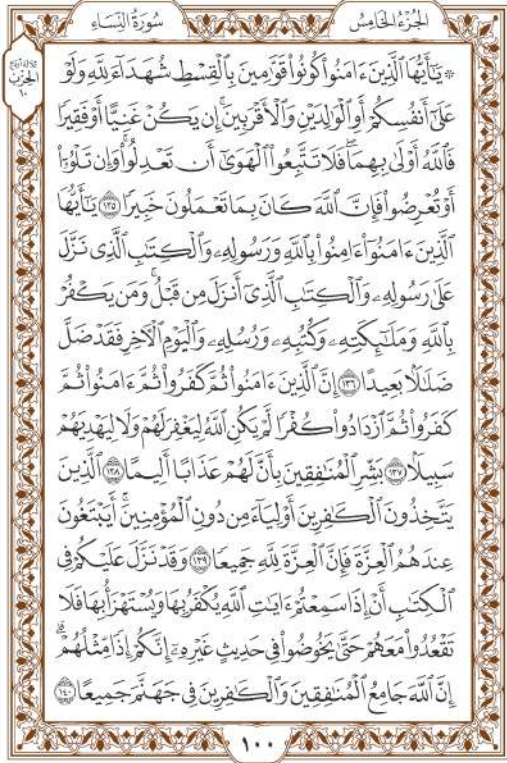 الجزء الخامس
سورة النساء
ثلاثة أرباع
الحزب
١٠
۞ يَٰٓأَيُّهَا ٱلَّذِينَ ءَامَنُواْ كُونُواْ قَوَّٰمِينَ بِٱلۡقِسۡطِ شُهَدَآءَ لِلَّهِ وَلَوۡ
عَلَىٰٓ أَنفُسِكُمۡ أَوِ ٱلۡوَٰلِدَيۡنِ وَٱلۡأَقۡرَبِينَۚ إِن يَكُنۡ غَنِيًّا أَوۡ فَقِيرٗا
فَٱللَّهُ أَوۡلَىٰ بِهِمَاۖ فَلَا تَتَّبِعُواْ ٱلۡهَوَىٰٓ أَن تَعۡدِلُواْۚ وَإِن تَلۡوُۥٓاْ
أَوۡ تُعۡرِضُواْ فَإِنَّ ٱللَّهَ كَانَ بِمَا تَعۡمَلُونَ خَبِيرٗا ١٣٥ يَٰٓأَيُّهَا
ٱلَّذِينَ ءَامَنُوٓاْ ءَامِنُواْ بِٱللَّهِ وَرَسُولِهِۦ وَٱلۡكِتَٰبِ ٱلَّذِي نَزَّلَ
عَلَىٰ رَسُولِهِۦ وَٱلۡكِتَٰبِ ٱلَّذِيٓ أَنزَلَ مِن قَبۡلُۚ وَمَن يَكۡفُرۡ
بِٱللَّهِ وَمَلَٰٓئِكَتِهِۦ وَكُتُبِهِۦ وَرُسُلِهِۦ وَٱلۡيَوۡمِ ٱلۡأٓخِرِ فَقَدۡ ضَلَّ
ضَلَٰلَۢا بَعِيدًا ١٣٦ إِنَّ ٱلَّذِينَ ءَامَنُواْ ثُمَّ كَفَرُواْ ثُمَّ ءَامَنُواْ ثُمَّ
كَفَرُواْ ثُمَّ ٱزۡدَادُواْ كُفۡرٗا لَّمۡ يَكُنِ ٱللَّهُ لِيَغۡفِرَ لَهُمۡ وَلَا لِيَهۡدِيَهُمۡ
سَبِيلَۢا ١٣٧ بَشِّرِ ٱلۡمُنَٰفِقِينَ بِأَنَّ لَهُمۡ عَذَابًا أَلِيمًا ١٣٨ ٱلَّذِينَ
يَتَّخِذُونَ ٱلۡكَٰفِرِينَ أَوۡلِيَآءَ مِن دُونِ ٱلۡمُؤۡمِنِينَۚ أَيَبۡتَغُونَ
عِندَهُمُ ٱلۡعِزَّةَ فَإِنَّ ٱلۡعِزَّةَ لِلَّهِ جَمِيعٗا ١٣٩ وَقَدۡ نَزَّلَ عَلَيۡكُمۡ فِي
ٱلۡكِتَٰبِ أَنۡ إِذَا سَمِعۡتُمۡ ءَايَٰتِ ٱللَّهِ يُكۡفَرُ بِهَا وَيُسۡتَهۡزَأُ بِهَا فَلَا
تَقۡعُدُواْ مَعَهُمۡ حَتَّىٰ يَخُوضُواْ فِي حَدِيثٍ غَيۡرِهِۦٓ إِنَّكُمۡ إِذٗا مِّثۡلُهُمۡۗ
إِنَّ ٱللَّهَ جَامِعُ ٱلۡمُنَٰفِقِينَ وَٱلۡكَٰفِرِينَ فِي جَهَنَّمَ جَمِيعًا ١٤٠
١٠٠